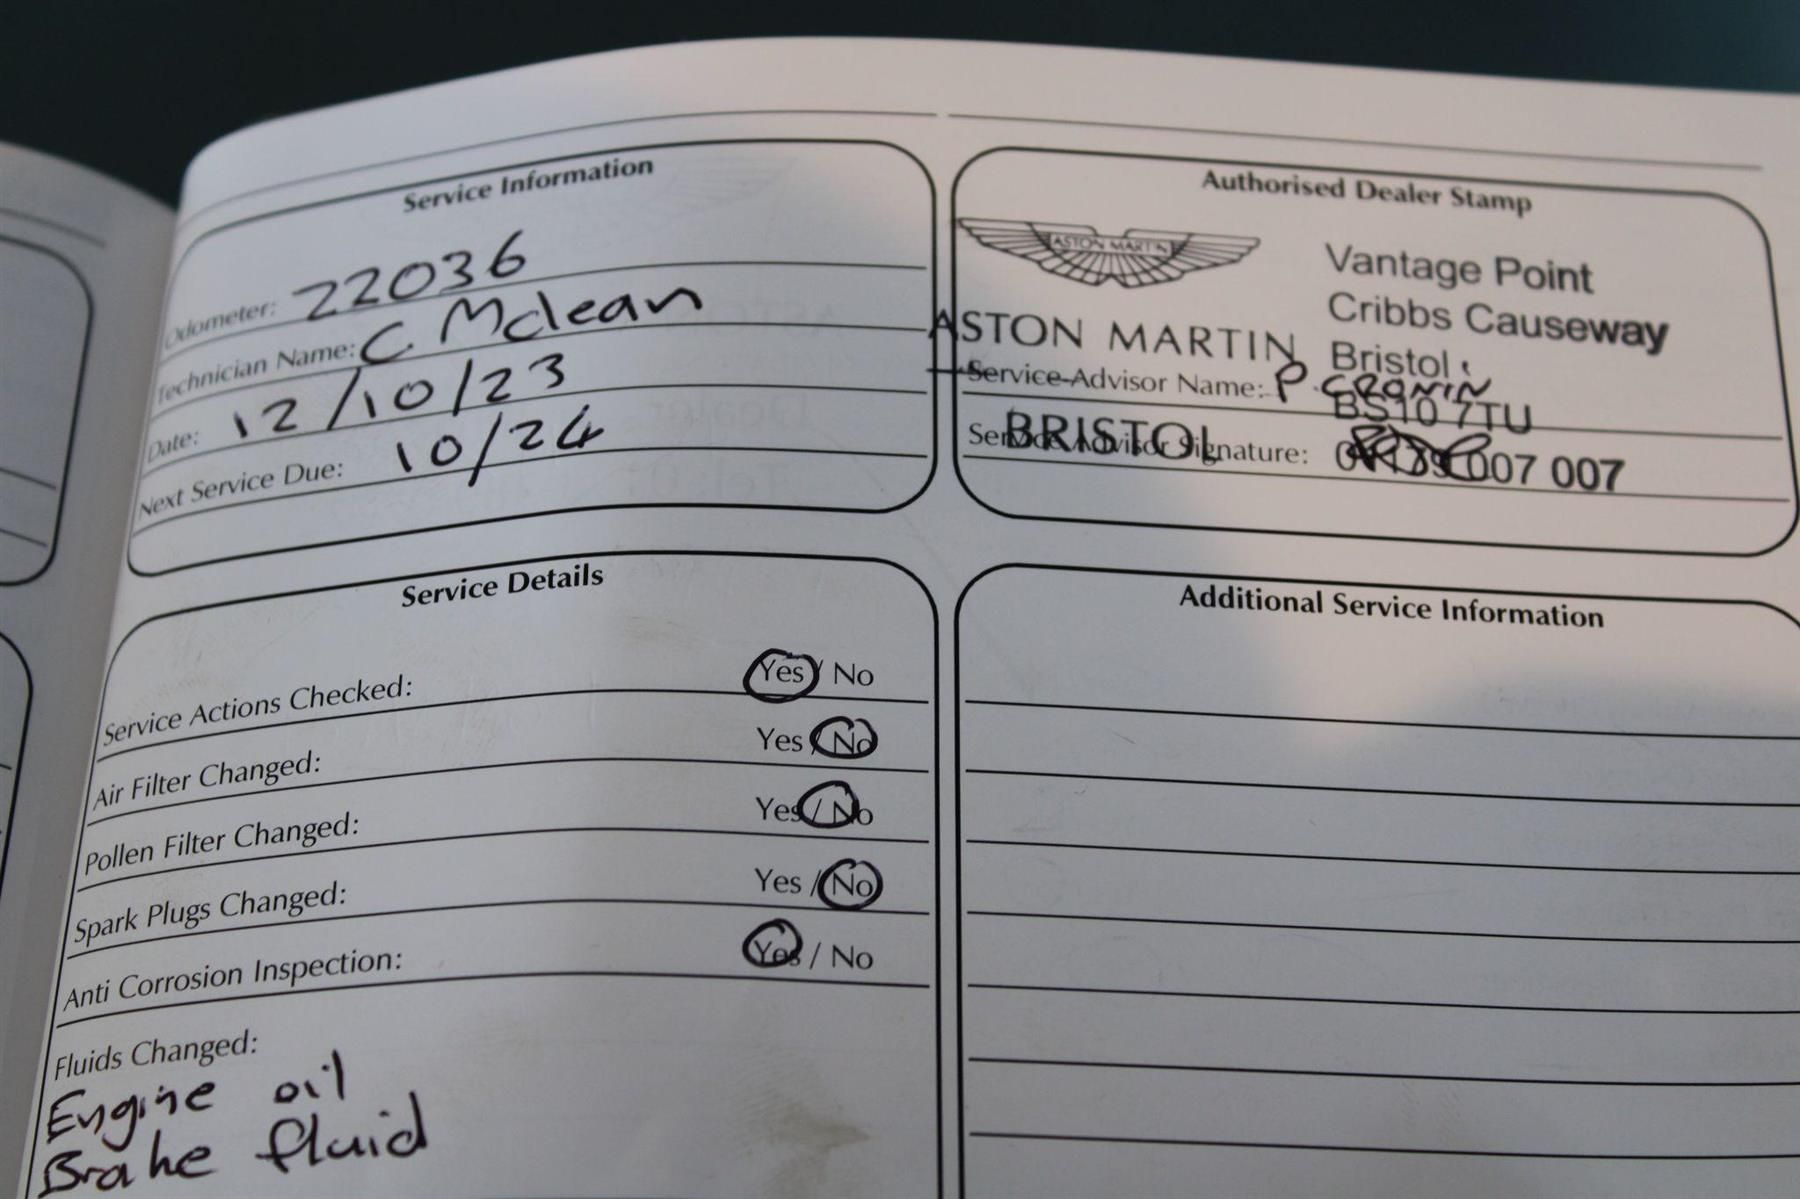 Service Information
Odometer: 22036
Technician Name: C Mclean
Date: 12/10/23
Next Service Due: 10/24
Authorised Dealer Stamp
ASTON MARTIN
ASTON MARTIN
BRISTOL
Vantage Point
Cribbs Causeway
Bristol
BS10 7TU
007 007
Service Advisor Name: P. CRONIN
Service Advisor Signature:
Service Details
Service Actions Checked: Yes / No
Air Filter Changed: Yes / No
Pollen Filter Changed: Yes / No
Spark Plugs Changed: Yes / No
Anti Corrosion Inspection: Yes / No
Fluids Changed:
Engine oil
Brake fluid
Additional Service Information